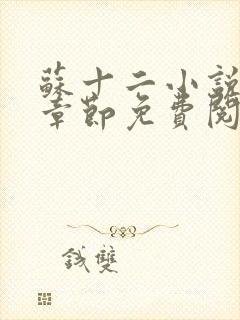 蘇十二小說
章節免費閱
錢雙